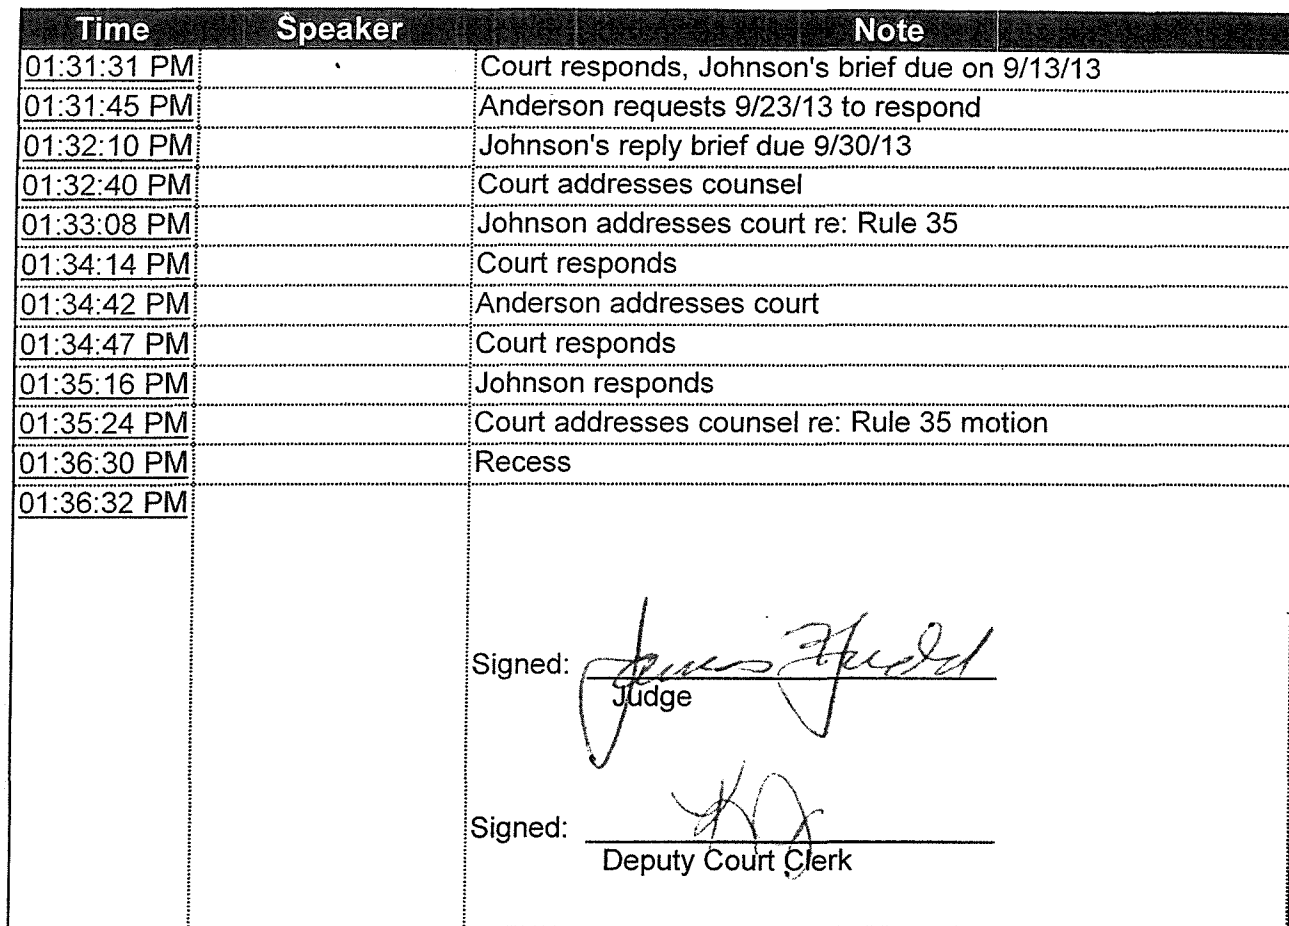 Time Speaker Note
01:31:31 PM Court responds, Johnson's brief due on 9/13/13
01:31:45 PM Anderson requests 9/23/13 to respond
01:32:10 PM Johnson's reply brief due 9/30/13
01:32:40 PM Court addresses counsel
01:33:08 PM Johnson addresses court re: Rule 35
01:34:14 PM Court responds
01:34:42 PM Anderson addresses court
01:34:47 PM Court responds
01:35:16 PM Johnson responds
01:35:24 PM Court addresses counsel re: Rule 35 motion
01:36:30 PM Recess
01:36:32 PM
Signed:
Judge
Signed:
Deputy Court Clerk